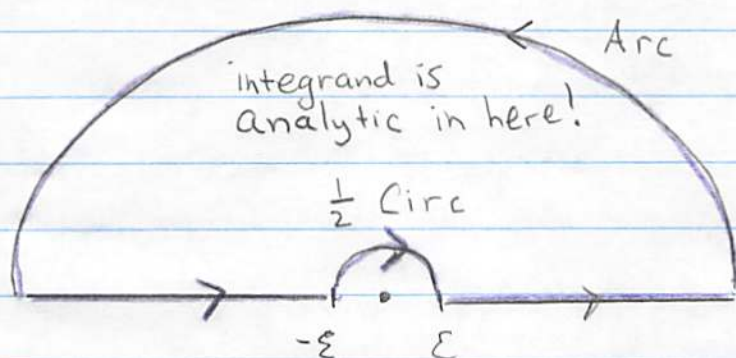 Arc
integrand is
analytic in here!
1/2 Circ
-ε ε